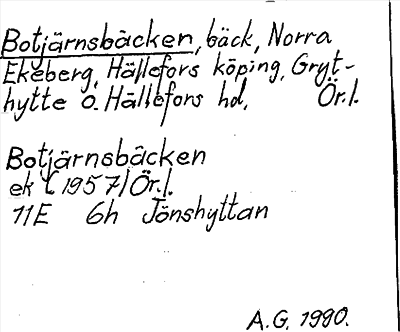 Botjärnsbäcken, bäck, Norra
Ekeberg, Hällefors köping, Gryt-
hytte o. Hällefors hd, Ör.l.
Botjärnsbäcken
ek (1957) Ör.l.
11E 6h Jönshyttan
A.G. 1990.